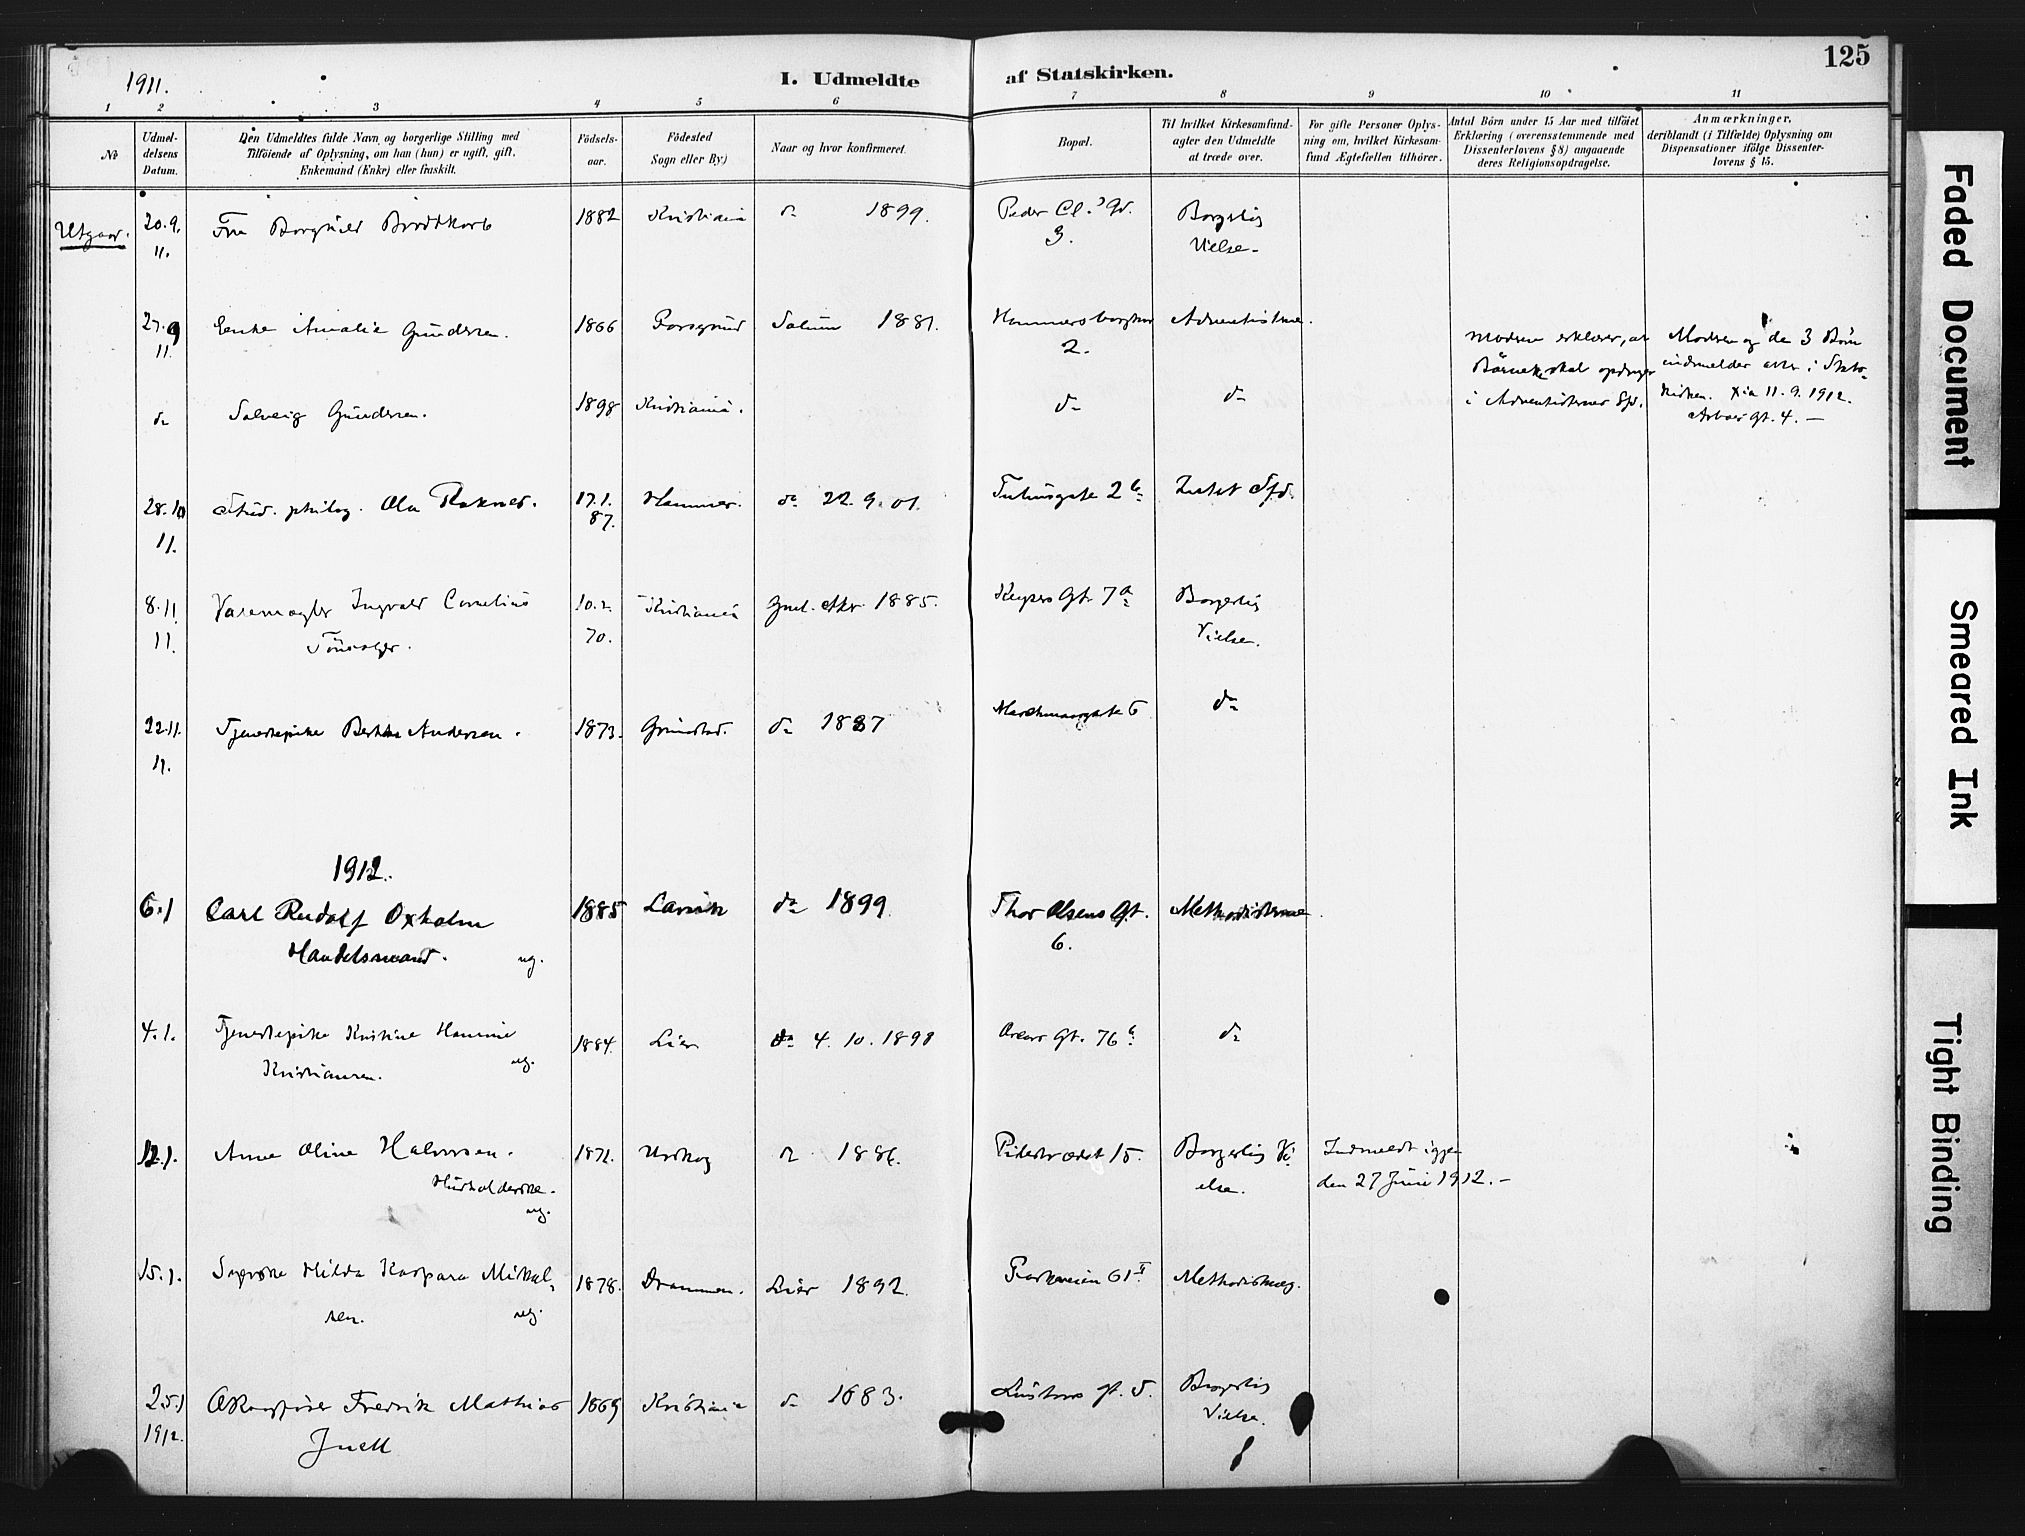 1911.
I. Udmeldte af Statskirken.
125
1 2 3 4 5 6 7 8 9 10 11
No
Udmel-
delsens
Datum.
Den Udmeldtes fulde Navn og borgerlige Stilling med
Tilföiende af Oplysning, om han (hun) er ugift, gift,
Enkemand (Enke) eller fraskilt.
Födsels-
aar.
Födested
Sogn eller By)
Naar og hvor konfirmeret.
Bopæl.
Til hvilket Kirkesamfund-
agter den Udmeldte
at træde over.
For gifte Personer Oplys-
ning om, hvilket Kirkesam-
fund Ægtefællen tilhörer.
Antal Börn under 15 Aar med tilföiet
Erklæring (overensstemmende med
Dissenterlovens § 8) angaaende
deres Religionsopdragelse.
Anmærkninger,
deriblandt (i Tilfælde) Oplysning om
Dispensationer ifölge Dissenter-
lovens § 15.
Utgaar. 20.9. Fru Borghild Brodtkorb 1882 Kristiania do 1899. Peder Cl.s Gd. Borgerlig
11. 3. Vielse.
27.9 Enke Amalie Gundersen. 1866 Porsgrund Solum 1881. Hammersborgtor Adventisterne.
11. 2.
Moderen erklærer, at
Börnene skal opdrages
i Adventisternes Sfd.
Moderen og de 3 Börn
indmeldes atter i Stats-
kirken. Xia 11.9.1912.
Gt. 4.
do Solveig Gundersen. 1898 Kristiania. do do
28.10 Stud. philog. Ola Raknes. 17.1. Hammer. do 22.9.01. Tulinsgate 2 b Intet Sfd.
11. 87.
8.11. Varemægler Ingvald Cornelius 10.2. Kristiania Gml. Akr. 1885. Keysers Gt. 7 a Borgerlig
11. Tönsager. 70. Vielse.
22.11. Tjenestepike Bertha Andersen. 1873. Grimstad. do 1887 6 do
11.
1912.
6.1 Carl Rudolf Oxholm 1885 Larvik do 1899. Thor Olsens Gt. Methodisterne.
Handelsmand. ug. 6.
4.1. Tjenestepike Kristine Hannie 1884. Lier do 4.10.1898 Gt. 76 b do
Kristiansen. ug.
12.1. Anne Oline Halvorsen. 1871. Urskog do 1886. Pilestrædet 15. Borgerlig Vi- Indmeldt igjen
Husholderske. else. den 27 Juni 1912.
ug.
15.1. Syerske Hilda Kaspara Mikal- 1878. Drammen. Lier 1892. Parkveien 61 II Methodistmeg.
sen. ug.
25.1 Fredrik Mathias 1869 Kristiania do 1883. gt. 5. Borgerlig
1912. Juell Vielse.
Faded Document
Smeared Ink
Tight Binding